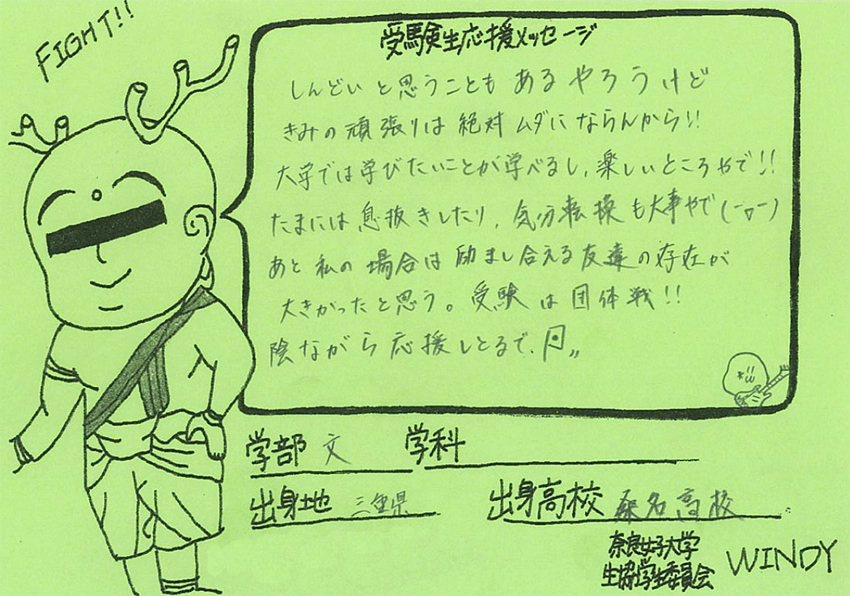 FIGHT!!
受験生応援メッセージ
しんどいと思うこともあるやろうけど
きみの頑張りは絶対ムダにならんから!!
大学では学びたいことが学べるし、楽しいところやで!!
たまには息抜きしたり、気分転換も大事やで(ー▽ー)
あと私の場合は励まし合える友達の存在が
大きかったと思う。受験は団体戦!!
陰ながら応援しとるで。
学部 文 学科
出身地 三重県 出身高校 桑名高校
奈良女子大学
生協学生委員会 WINDY